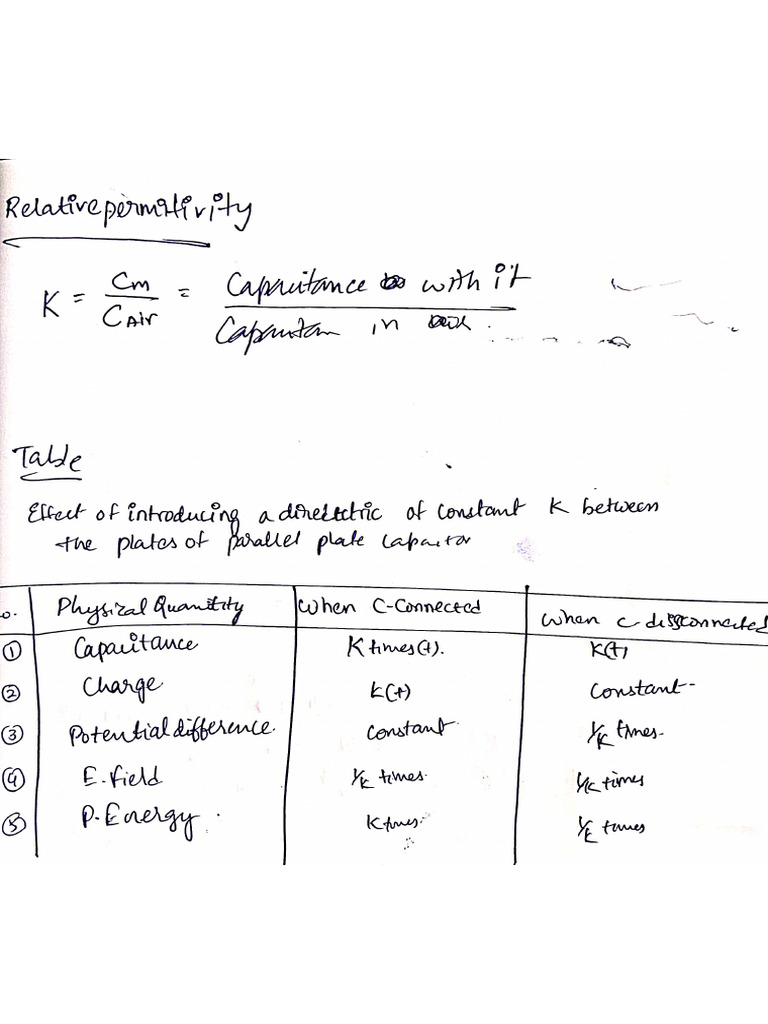 Relative permitivity
K = Cm / CAir = Capacitance with it / Capacitan in
Table
Effect of introducing a direlectric of constant K between
the plates of parallel plate capacitor
o. Physical Quantity When C-Connected When c disconnected
① Capacitance K times(t). K(t)
② Charge K(t) Constant
③ Potential difference. constant 1/K times.
④ E. field 1/K times. 1/K times
⑤ P. Energy. K times. 1/K times